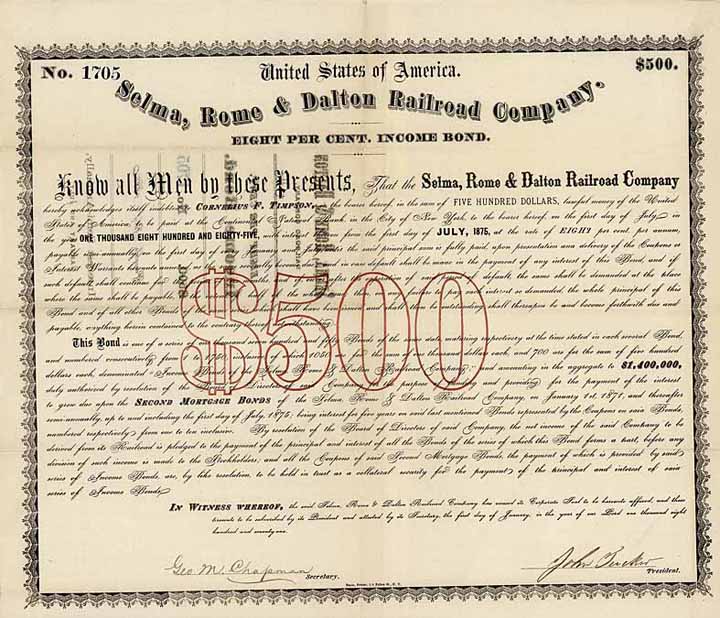 No. 1705
United States of America.
$500.
Selma, Rome & Dalton Railroad Company.
EIGHT PER CENT. INCOME BOND.
Know all Men by these Presents, That the Selma, Rome & Dalton Railroad Company
hereby acknowledges itself indebted to CORNELIUS F. TIMPSON, or the bearer hereof in the sum of FIVE HUNDRED DOLLARS, lawful money of the United
States of America to be paid at the Continental National Bank in the City of New York to the bearer hereof on the first day of July in
the year ONE THOUSAND EIGHT HUNDRED AND EIGHTY-FIVE, with interest from the first day of JULY, 1875, at the rate of EIGHT per cent. per annum,
payable semi-annually on the first day of the said principal sum is fully paid, upon presentation and delivery of the Coupons or
Interest Warrants hereunto in case default shall be made in the payment of any interest of this Bond, and if
such default shall continue for default, the same shall be demanded at the place
where the same shall be payable, to pay interest so demanded, the whole principal of this
Bond and of all other Bonds shall have been and shall then be outstanding shall thereupon be and become forthwith due and
payable, anything herein contained to the contrary hereof notwithstanding.
This Bond is one of a series hundred and fifty Bonds of the same date, maturing respectively at the time stated in each several Bond,
and numbered consecutively from of which 1050 are for the sum of one thousand dollars each, and 700 are for the sum of five hundred
dollars each, denominated Income Selma, Rome & Dalton Railroad Company, and amounting in the aggregate to $1,400,000,
duly authorized by resolution of the Board of Directors of said Company, for the purpose of funding and providing for the payment of the interest
to grow due upon the SECOND MORTGAGE BONDS of the Selma, Rome & Dalton Railroad Company, on January 1st, 1871, and thereafter
semi-annually, up to and including the first day of July 1875; being interest for five years on said last mentioned Bonds represented by the Coupons on said Bonds,
numbered respectively from one to ten inclusive. By resolution of the Board of Directors of said Company, the net income of the said Company to be
derived from its Railroad is pledged to the payment of the principal and interest of all the Bonds of the series of which this Bond forms a part, before any
division of such income is made to the Stockholders, and all the Coupons of said Second Mortgage Bonds, the payment of which is provided by said
series of Income Bonds, are, by like resolution, to be held in trust as a collateral security for the payment of the principal and interest of said
series of Income Bonds.
IN WITNESS WHEREOF, the said Selma, Rome & Dalton Railroad Company has caused its Corporate Seal to be hereunto affixed, and these
presents to be subscribed by its President and attested by its Secretary, the first day of January, in the year of our Lord one thousand eight
hundred and seventy-one.
$500
Geo M. Chapman Secretary.
John Tucker President.